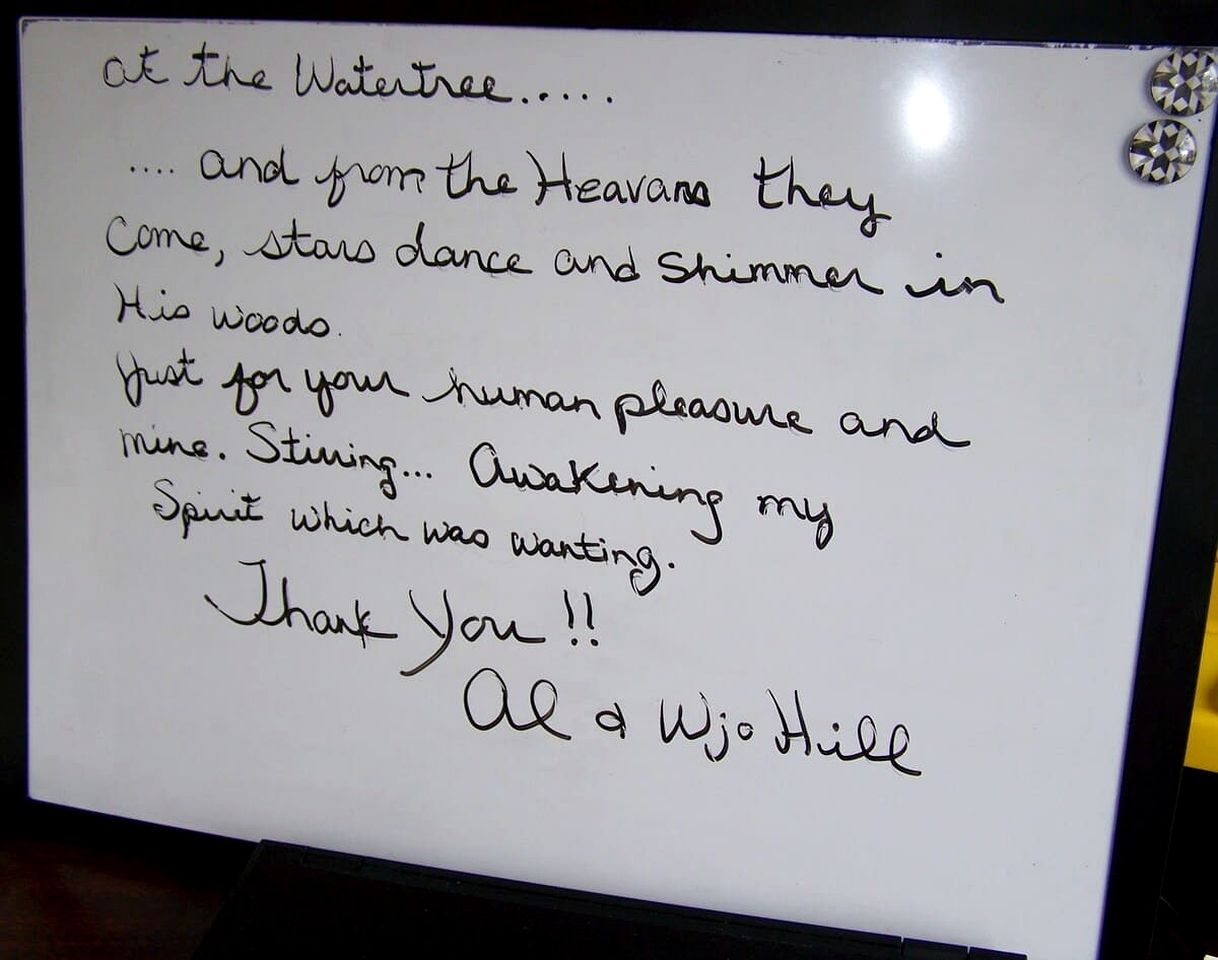 at the Watertree.....
.... and from the Heavans they
Come, stars dance and shimmer in
His woods.
Just for your human pleasure and
mine. Stirring... Awakening my
Spirit which was wanting.
Thank You!!
Al & Wjo Hill